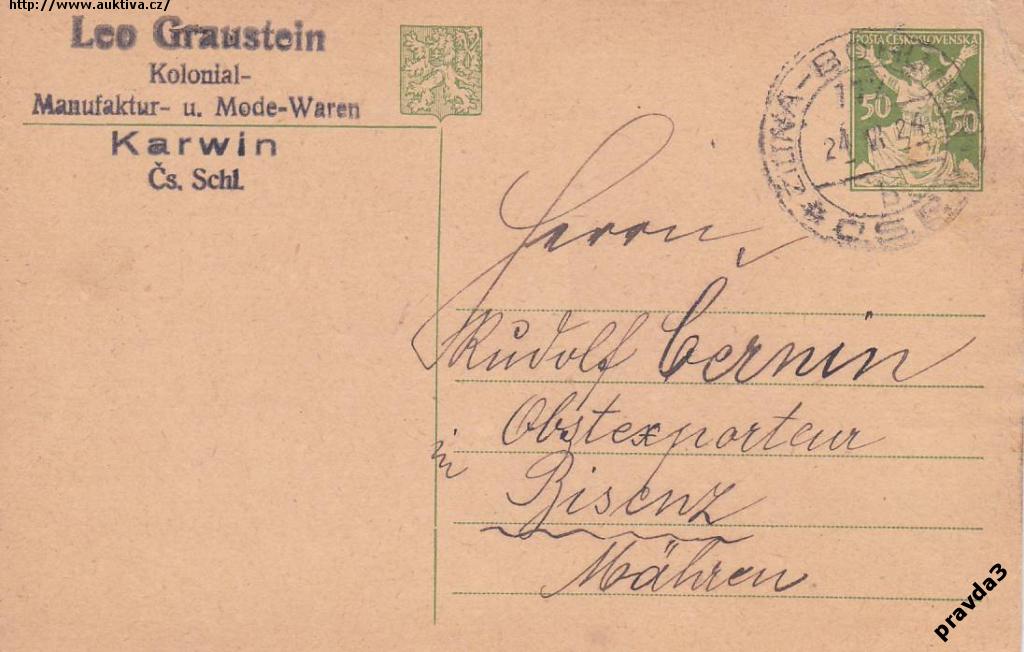 http://www.auktiva.cz/
Leo Graustein
Kolonial-
Manufaktur- u. Mode-Waren
Karwin
Čs. Schl.
POŠTA ČESKOSLOVENSKÁ
50 50
ŽILINA-BO
24 VI 24
Č.S.P.
Herrn
Rudolf Cernin
Obstexporteur
in
Bisenz
Mähren
pravda3